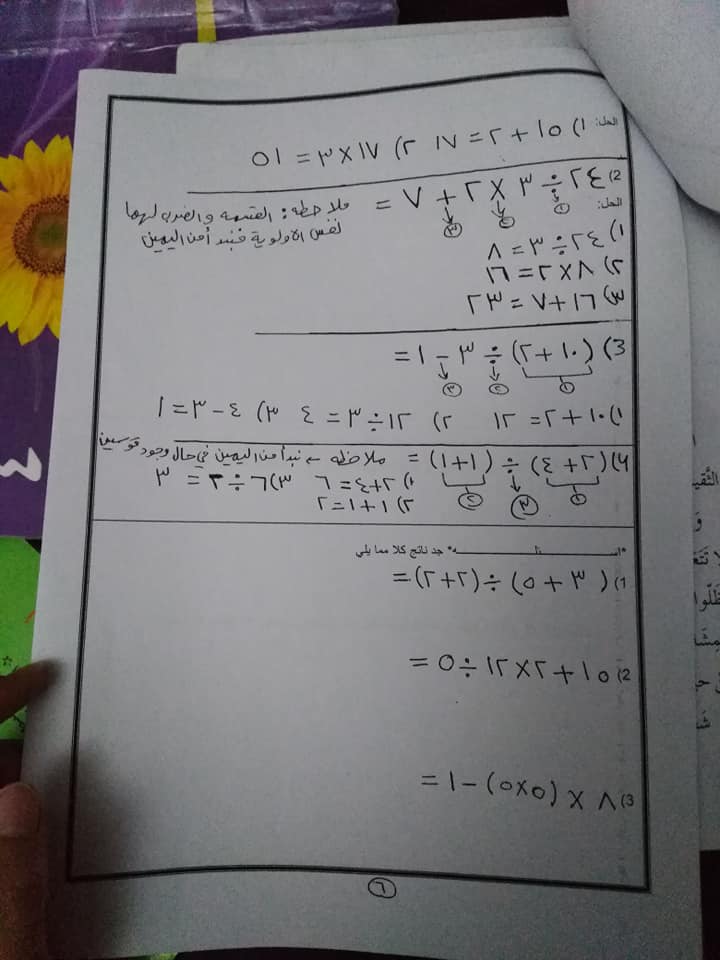 الحل: ١) ١٥ + ٢ = ١٧ ٢) ١٧ × ٣ = ٥١
2) ٢٤ ÷ ٣ × ٢ + ٧ = ملاحظة: القسمة و الضرب لهما
١ ٢ ٣ نفس الاولوية فنبدأ من اليمين
الحل:
١) ٢٤ ÷ ٣ = ٨
٢) ٨ × ٢ = ١٦
٣) ١٦ + ٧ = ٢٣
3) (١٠ + ٢) ÷ ٣ − ١ =
١ ٢ ٣
١) ١٠ + ٢ = ١٢ ٢) ١٢ ÷ ٣ = ٤ ٣) ٤ − ٣ = ١
4) (٢ + ٤) ÷ (١ + ١) = ملاحظة نبدأ من اليمين في حال وجود قوسين
١ ٣ ٢
١) ٢ + ٤ = ٦ ٣) ٦ ÷ ٢ = ٣
٢) ١ + ١ = ٢
*اسئلـــــــة* جد ناتج كلا مما يلي
1) (٣ + ٥) ÷ (٢ + ٢) =
2) ١٥ + ٢ × ١٢ ÷ ٥ =
3) ٨ × (٥ × ٥) − ١ =
٦